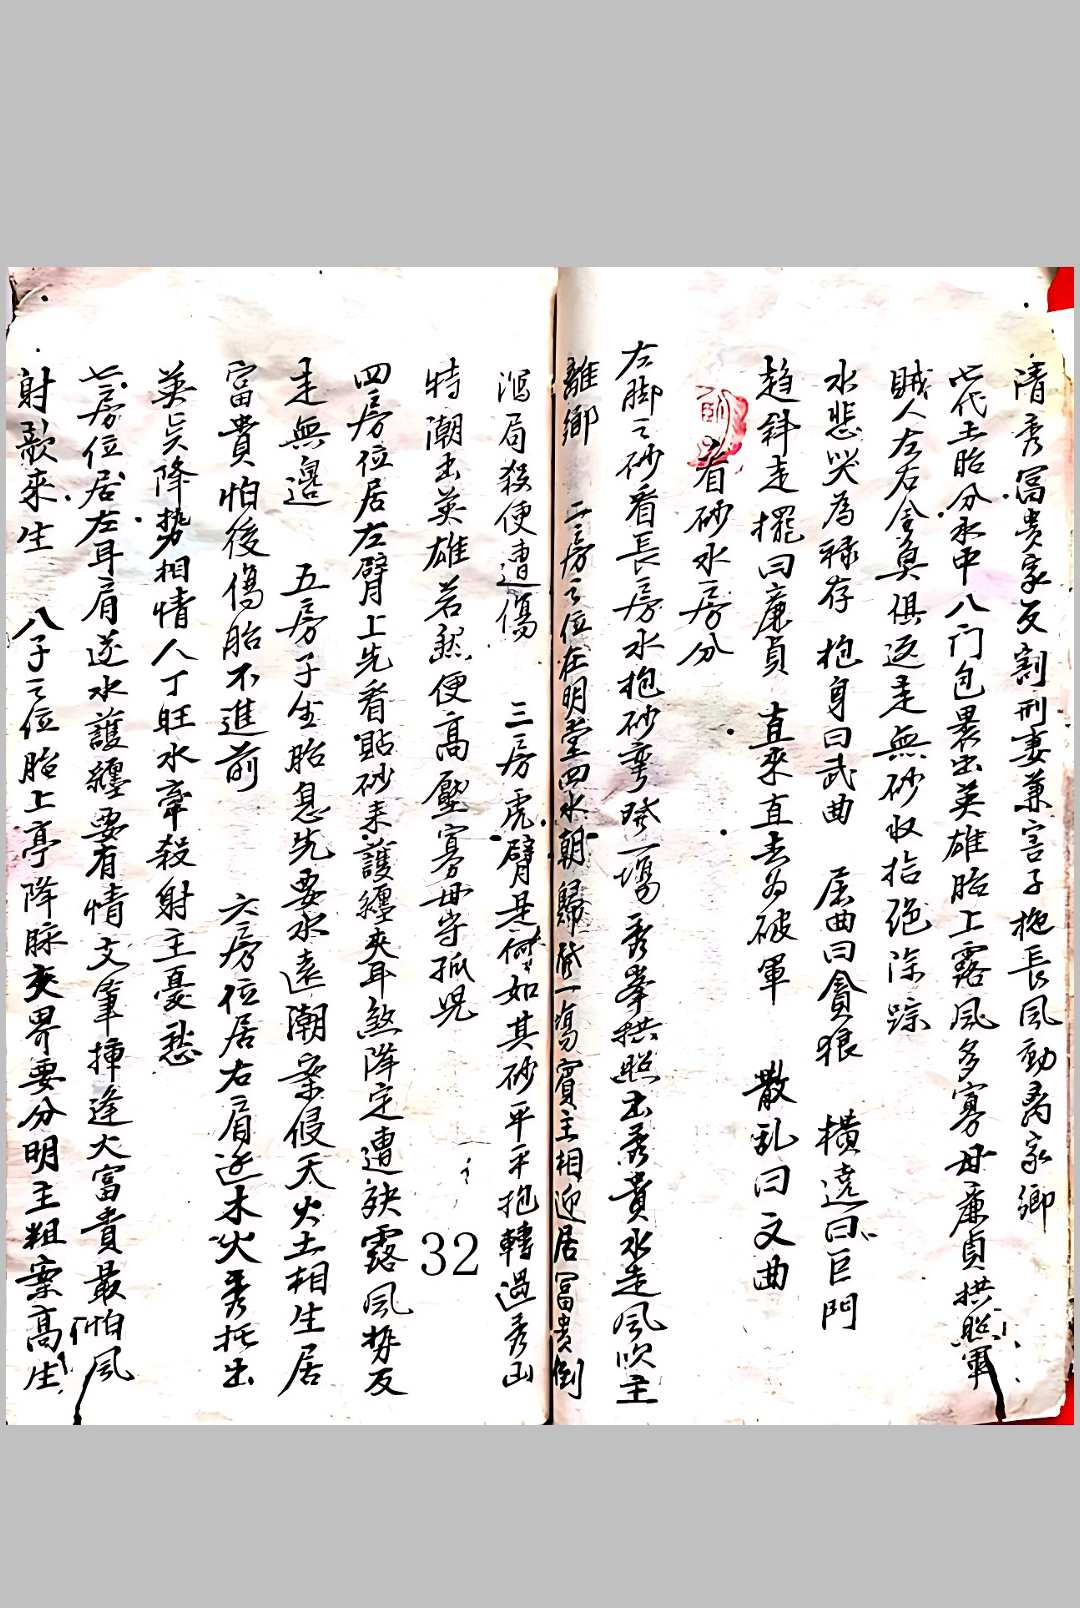 清秀冨贵家反割刑妻兼害子拖長風動离家鄉
七代土胎分水中八门包裹出英雄胎上露風多寡母廉貞拱照軍
賊人左右金臭俱返走無砂收拾绝除踪
水悲哭為禄存 抱身曰武曲 屈曲曰貪狼 橫遶曰巨門
趋斜走擺曰廉貞 直來直去為破軍 散乱曰文曲
看砂水房分
左脚之砂看長房水抱砂弯發一塲秀峯拱照出秀貴水走風吹主
離鄉 二房之位在明堂四水朝歸發一塲賓主相迎居冨贵倒
瀉局殺便遭傷 三房虎臂是何如其砂平平抱轉過秀山
特潮出英雄若然便高壓寡母守孤児
四房位居左臂上先看貼砂来護纏夾耳煞降定遭殃露風势反
走無邉 五房子生胎息先要水遠潮案侵天火土相生居
富貴怕後傷胎不進前 六房位居右肩逆木火秀托出
英灵降势相情人丁旺水牽殺射主憂愁
七房位居左耳肩逆水護纏要有情文筆挿逢火富貴最怕風
射歌来生 八子之位胎上亭降脉交界要分明主粗案高生
32